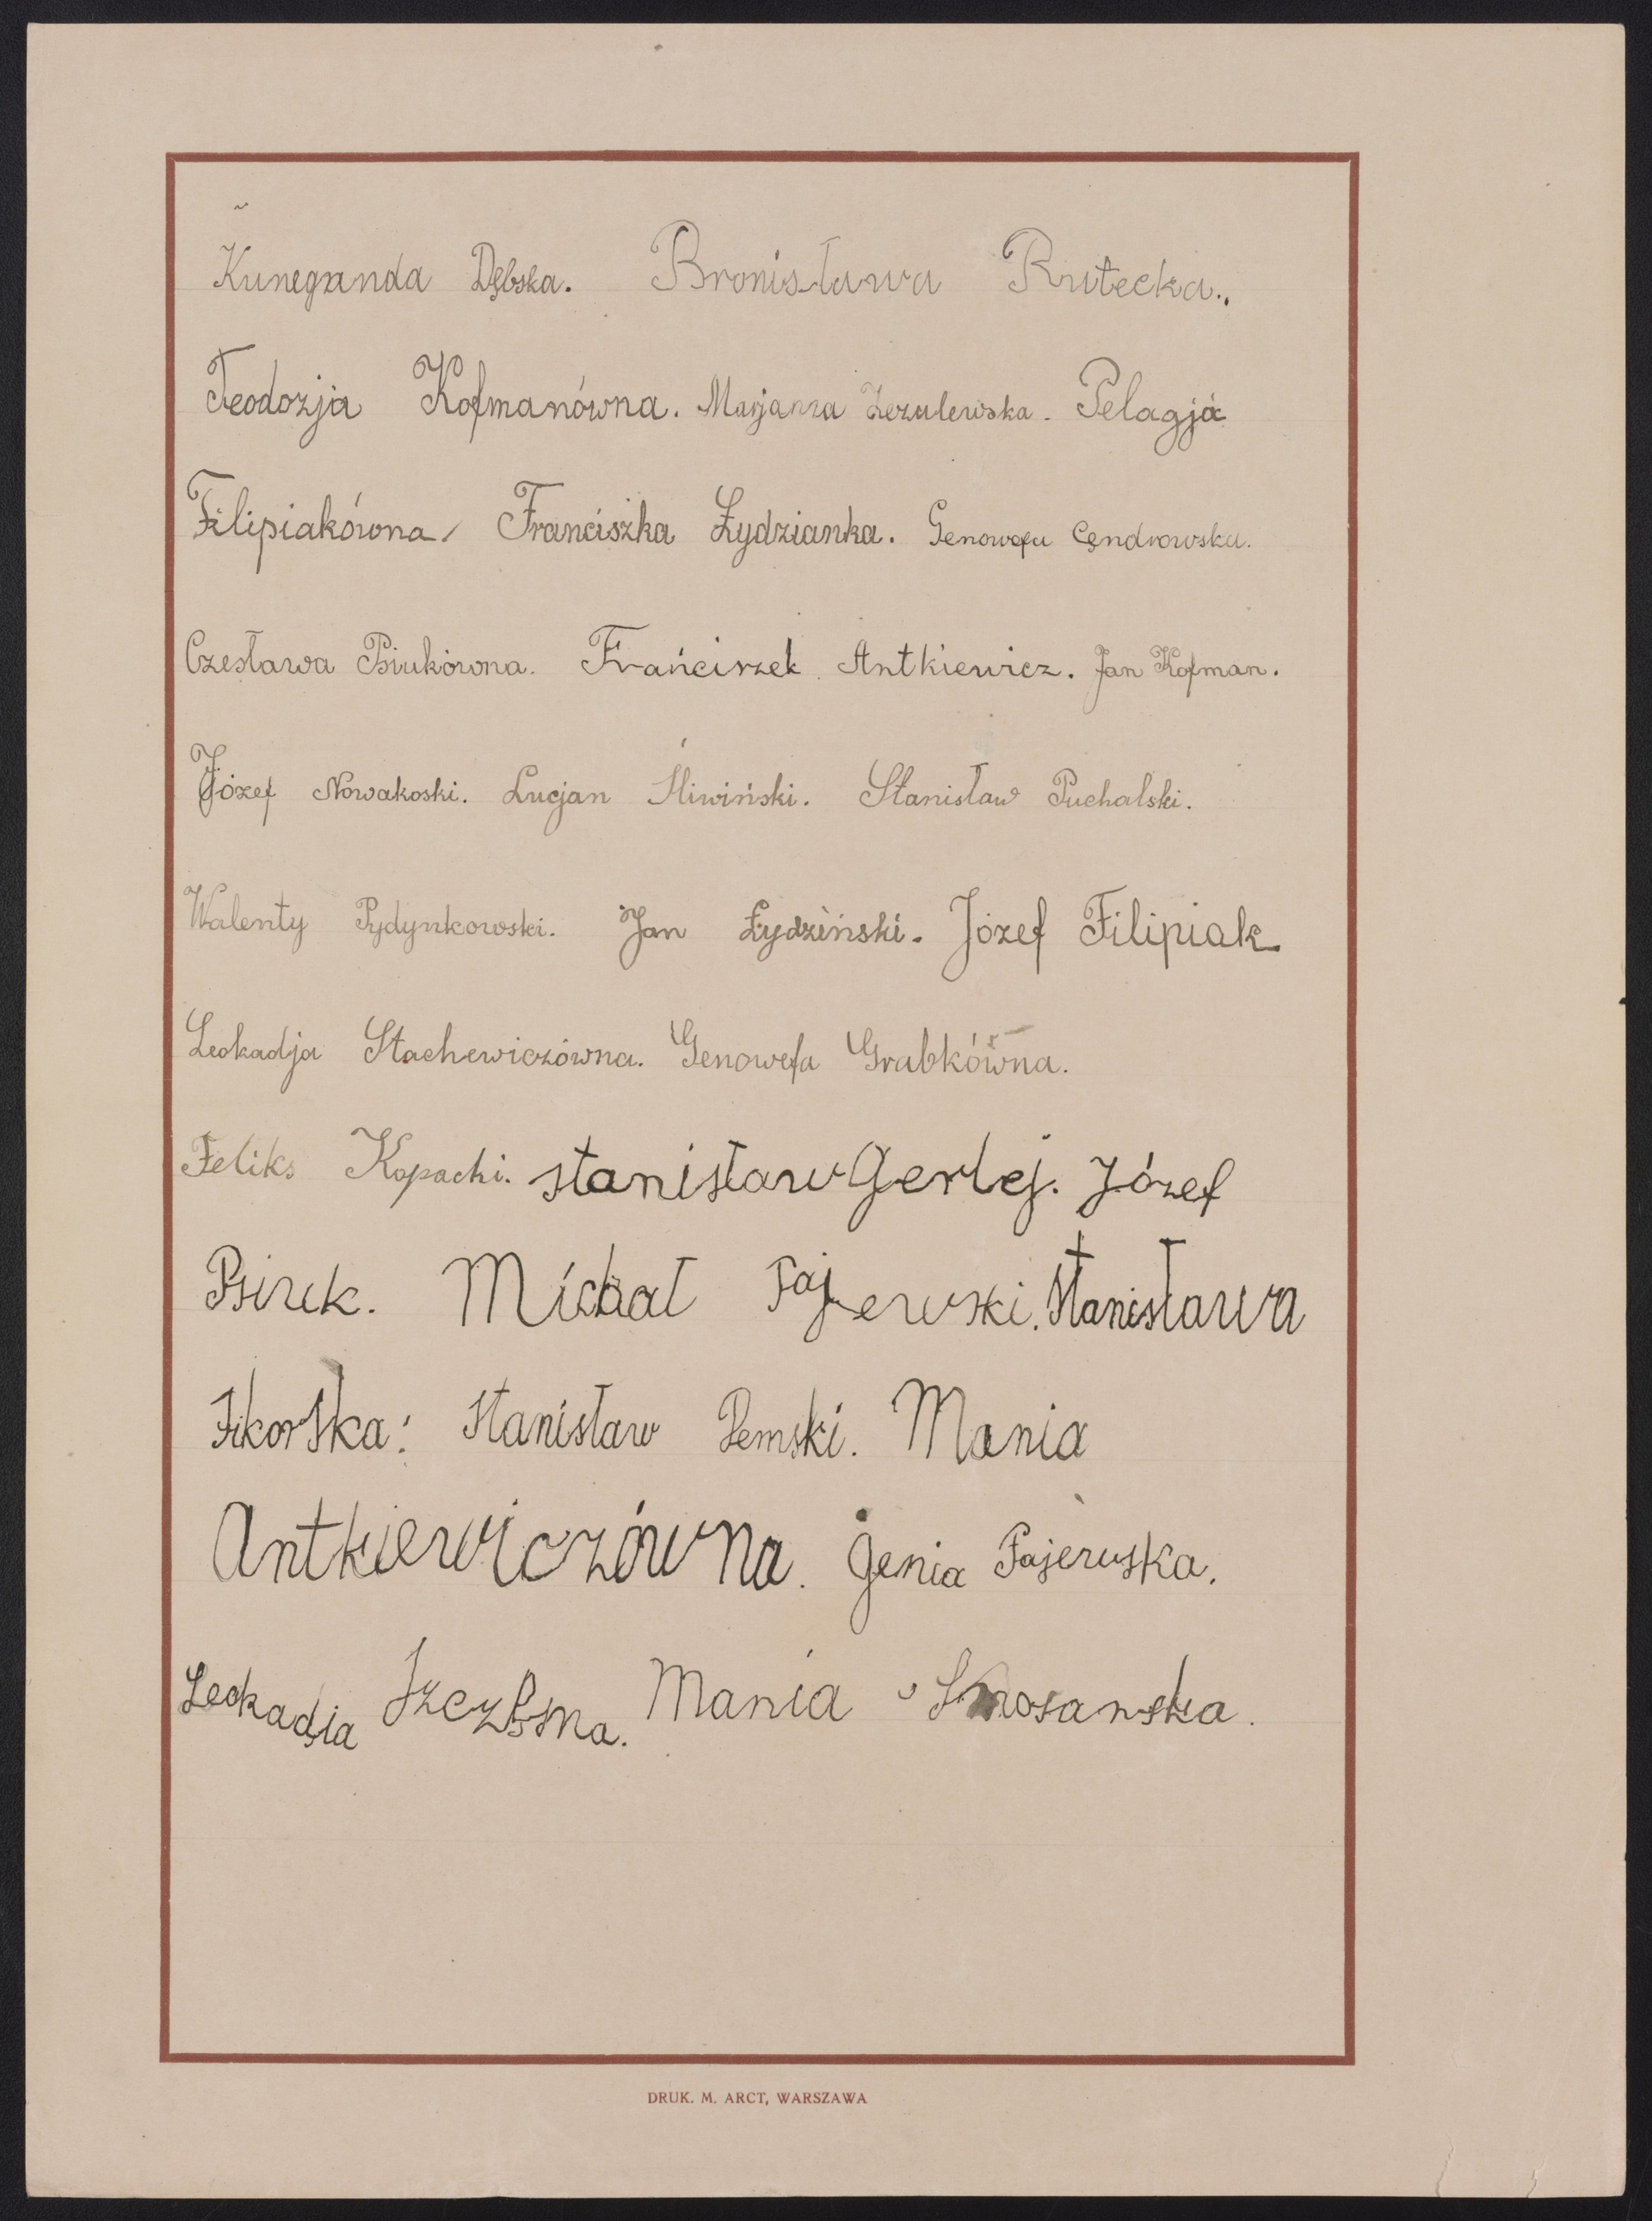 Kunegunda Dębska. Bronisława Rutecka.
Teodozja Kofmanówna. Marjanna Pelagja
Filipiakówna Franciszka Łydzianka. Genowefa Cendrowska.
Czesława Psiukówna. Frańciszek Antkiewicz. Jan Kofman.
Józef Nowakoski. Lucjan Śliwiński. Stanisław Puchalski.
Walenty Pydynkowski. Jan Łydziński. Józef Filipiak
Leokadja Stachewiczówna. Genowefa Grabkówna.
Feliks Kopacki. Stanisław Gerlej. Józef
Psiuk. Michał Fajewski. Stanisława
Sikorska. Stanisław Pemski. Mania
Antkiewiczówna. Genia Fajerwska.
Leokadia Szczęsna. Mania
DRUK. M. ARCT, WARSZAWA